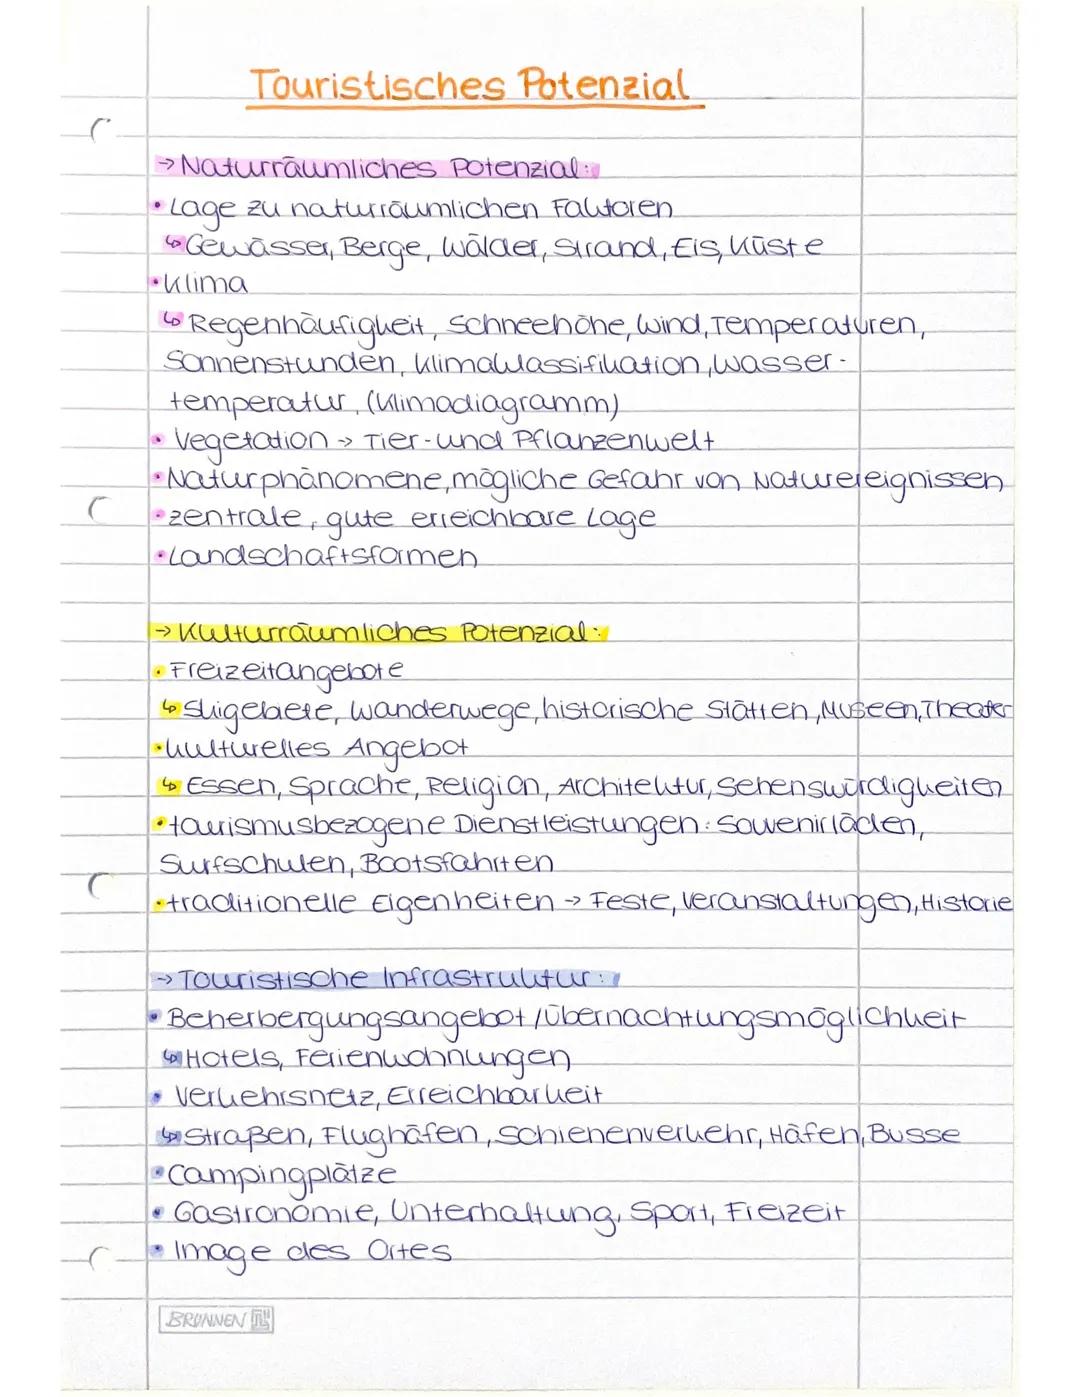 Touristisches Potenzial
→ Naturräumliches Potenzial:
• Lage zu naturräumlichen Faktoren
↳ Gewässer, Berge, Wälder, Strand, Eis, Küste
• Klima
↳ Regenhäufigkeit, Schneehöhe, Wind, Temperaturen,
Sonnenstunden, Klimaklassifikation, Wasser-
temperatur, (Klimadiagramm)
• Vegetation → Tier- und Pflanzenwelt
• Naturphänomene, mögliche Gefahr von Naturereignissen
• zentrale, gute erreichbare Lage
• Landschaftsformen
→ Kulturräumliches Potenzial:
• Freizeitangebote
↳ Skigebiete, Wanderwege, historische Stätten, Museen, Theater
• kulturelles Angebot
↳ Essen, Sprache, Religion, Architektur, Sehenswürdigkeiten
• tourismusbezogene Dienstleistungen: Souvenirläden,
Surfschulen, Bootsfahrten
• traditionelle Eigenheiten → Feste, Veranstaltungen, Historie
→ Touristische Infrastruktur:
• Beherbergungsangebot / Übernachtungsmöglichkeit
↳ Hotels, Ferienwohnungen
• Verkehrsnetz, Erreichbarkeit
↳ Straßen, Flughäfen, Schienenverkehr, Häfen, Busse
• Campingplätze
• Gastronomie, Unterhaltung, Sport, Freizeit
• Image des Ortes
BRUNNEN